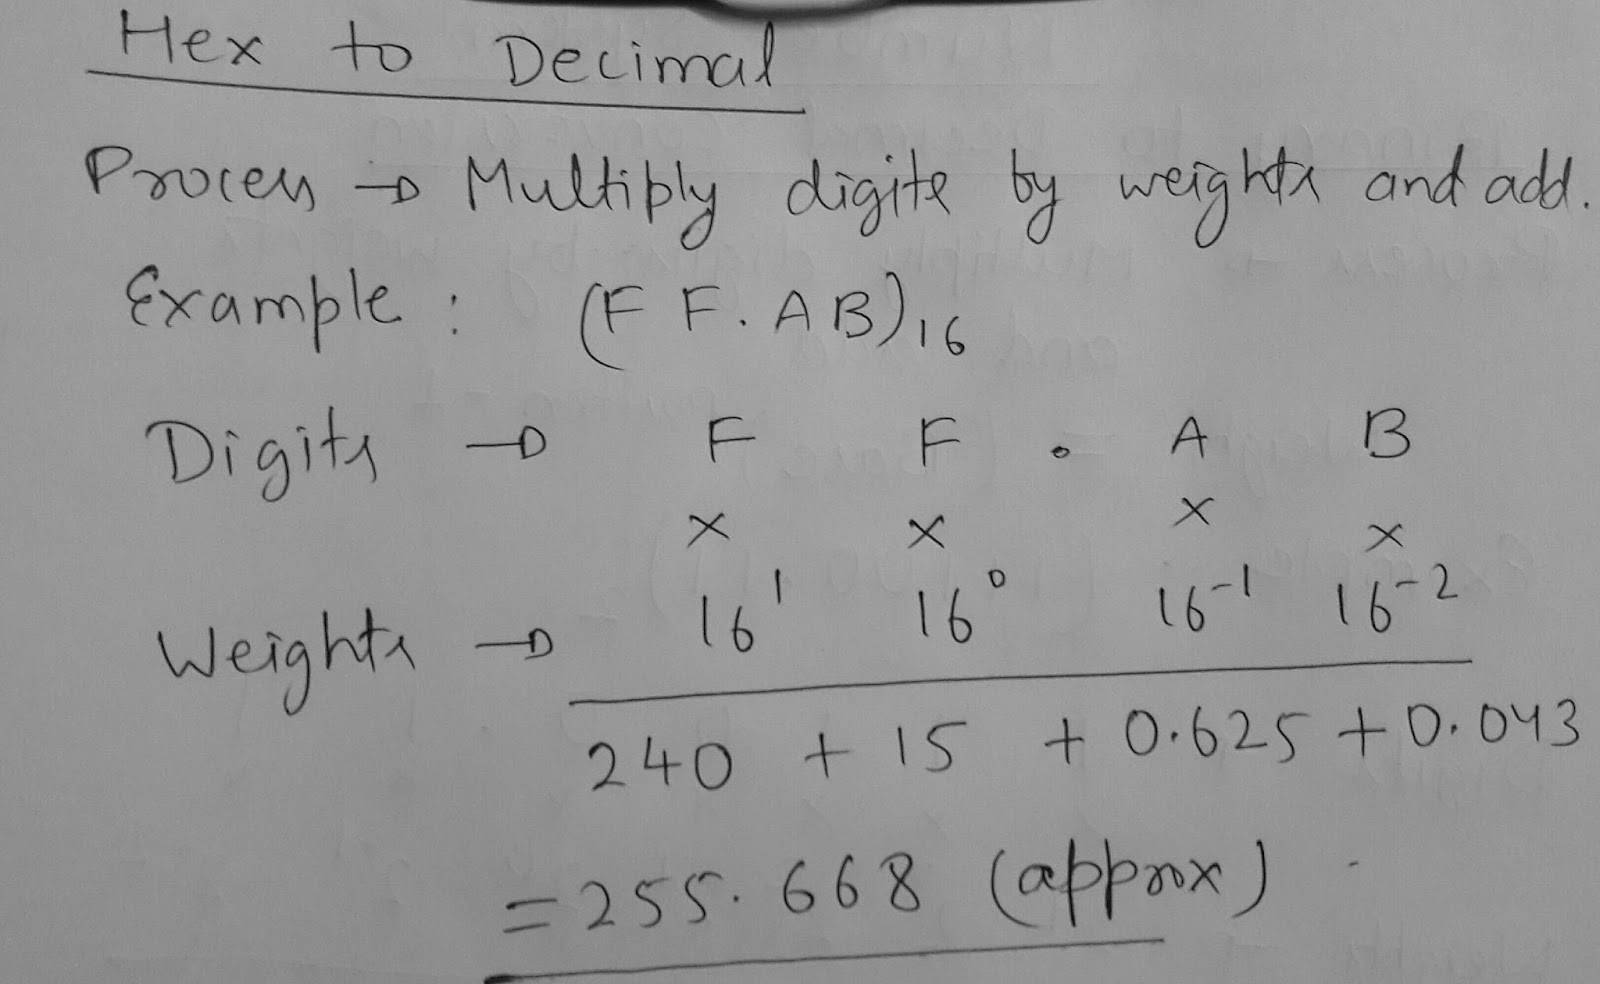 Hex to Decimal
Process → Multiply digits by weights and add.
Example : (FF.AB)₁₆
Digits → F F . A B
x x x x
Weights → 16¹ 16⁰ 16⁻¹ 16⁻²
240 + 15 + 0.625 + 0.043
= 255.668 (approx)